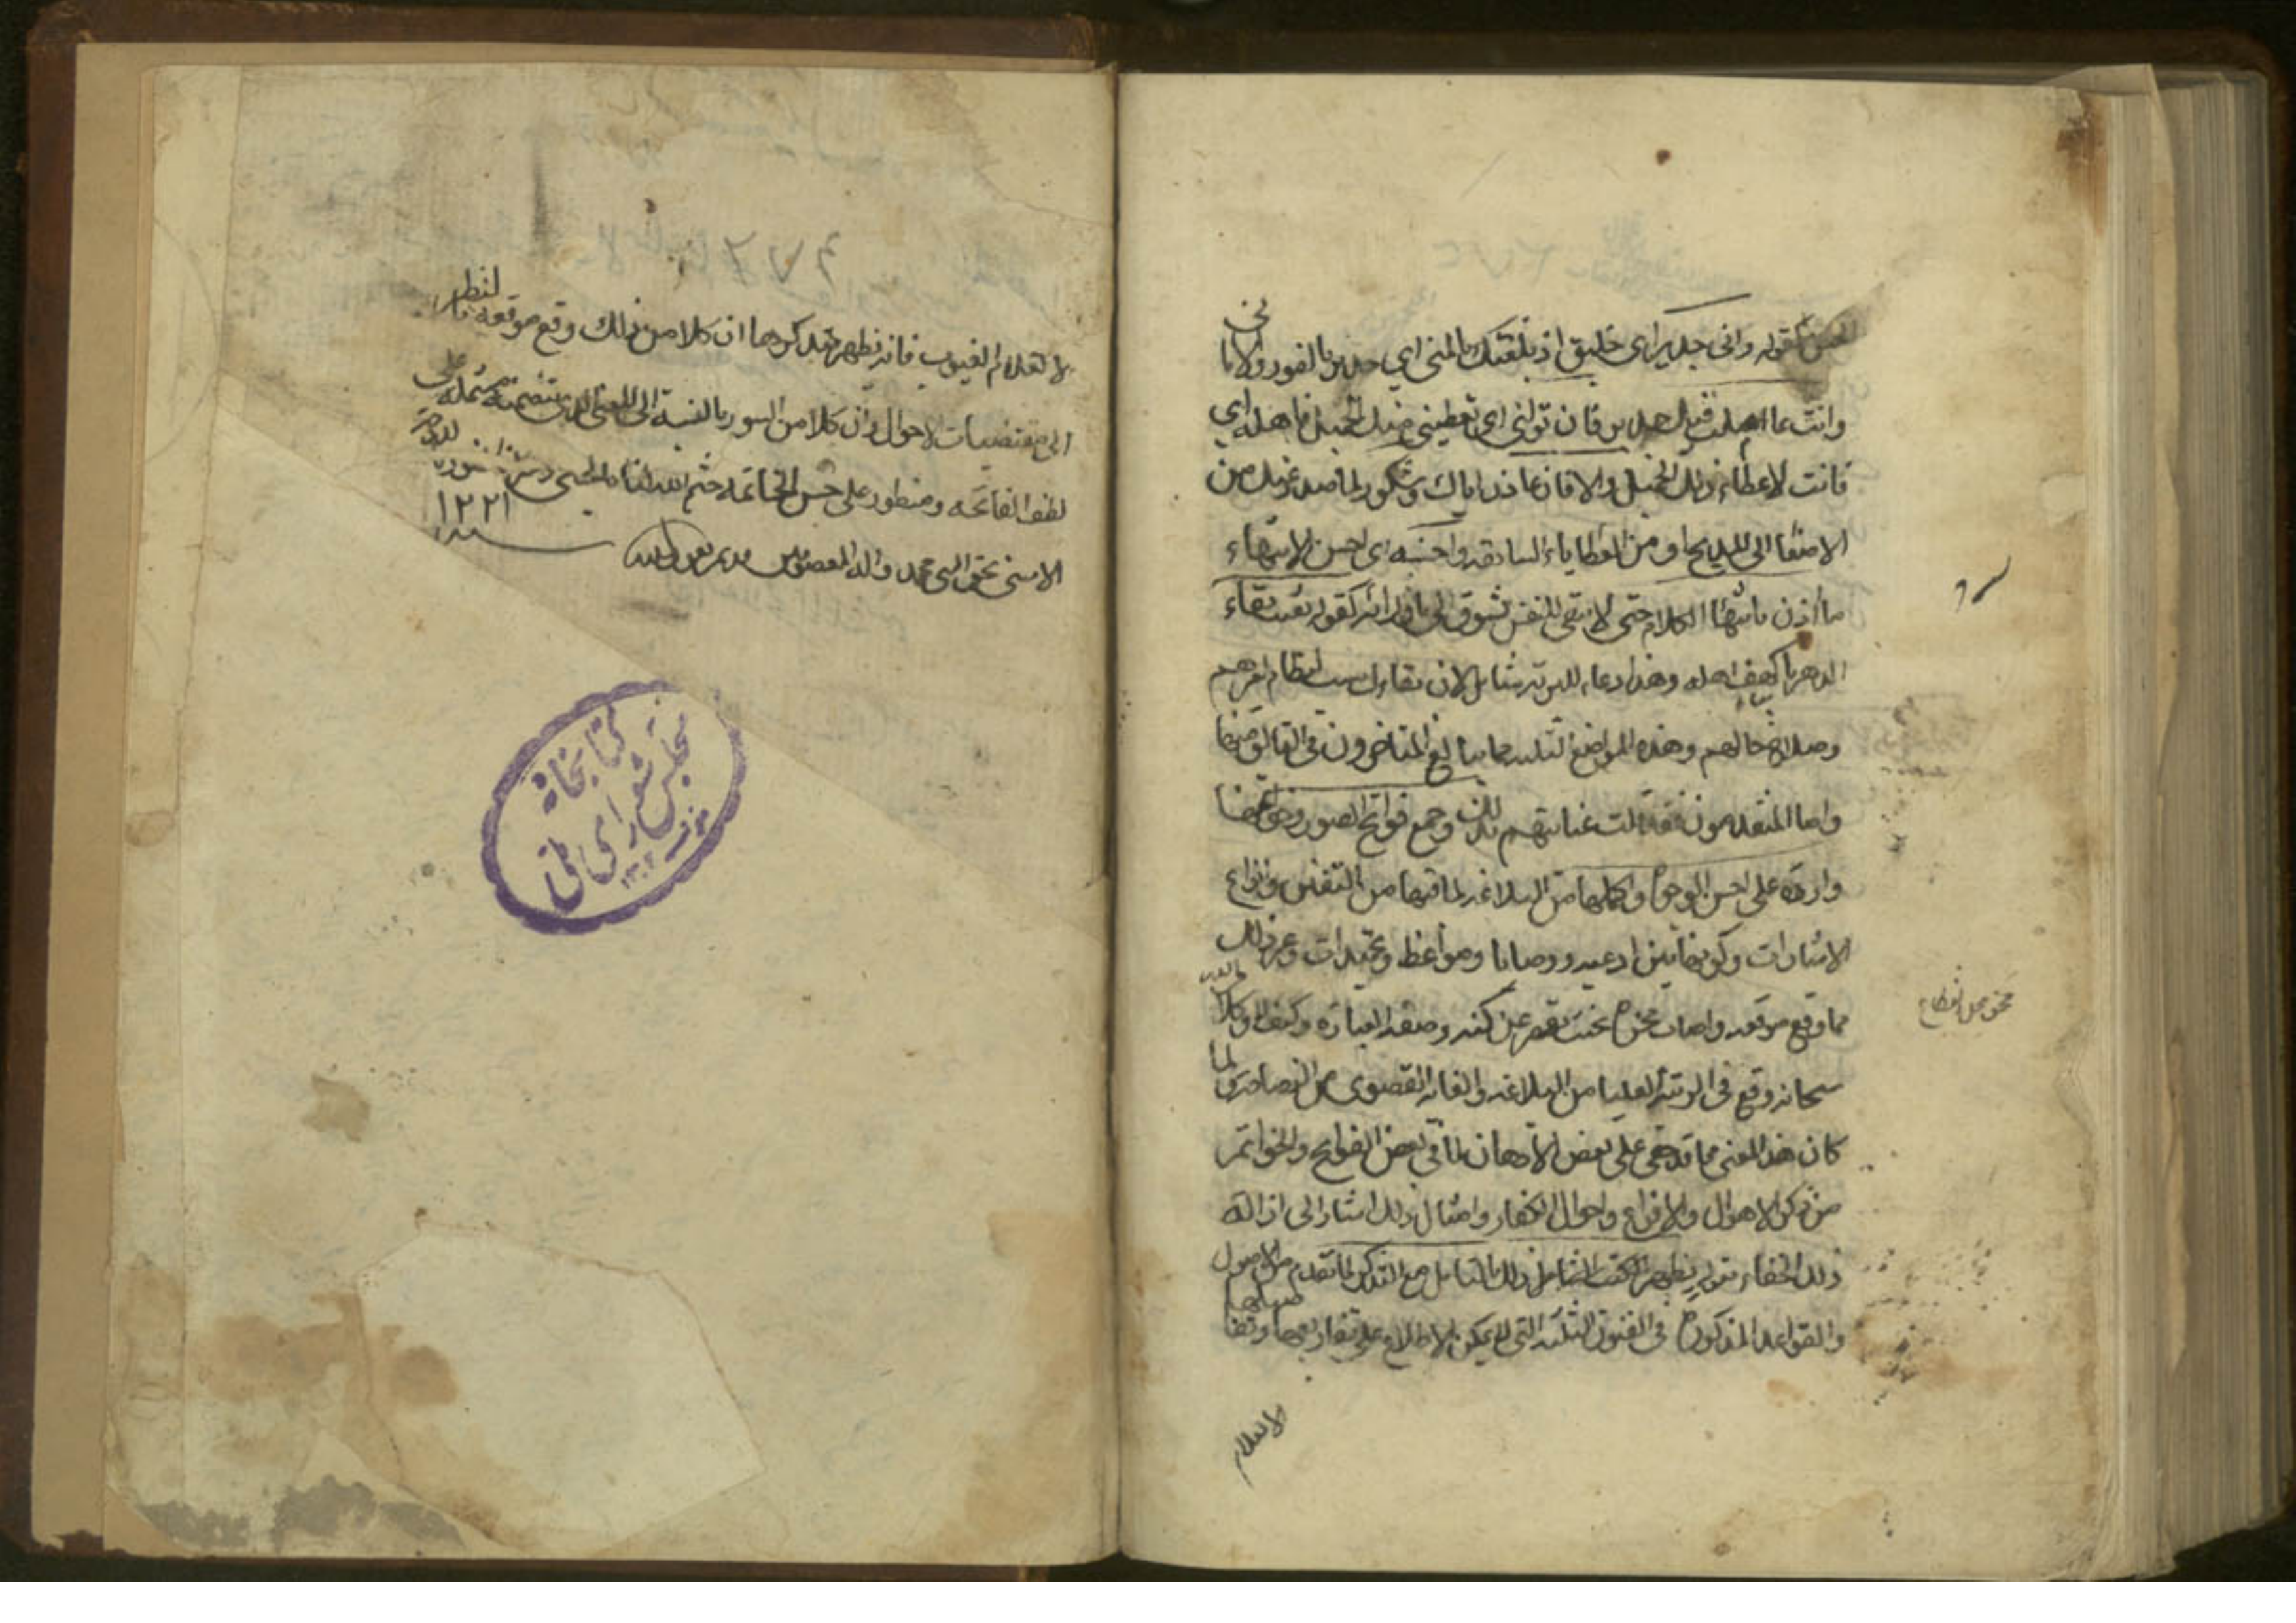 الحسن كقوله واني جدير اي خليق اذ بلغتك بالمنى اي جدير بالفوز بالاما
ني
وانت بما املت منك جدير فان تولني اي تعطيني منك الجميل فاهله اي
فانت لاعطاء ذلك الجميل والا فاني عاذر اياك وشكور لما صدر عنك من
الاصغا الى المديح او من العطاياء السابقه واحسنه اي احسن الانتهاء
ما اذن بانتهاء الكلام حتى لا يبقى للنفس تشوق الى ما ورائه كقوله بقيت بقاء
الدهر يا كهف اهله وهذا دعاء للبريه شامل لان بقاءك سبب لنظام امرهم
وصلاح حالهم وهذه المواضع الثلثه مما يبالغ المتاخرون في التانق فيها
واما المتقدمون فقد قلت عنايتهم بذلك وجميع فواتح السور وخواتمها
وارده على احسن الوجوه واكملها من البلاغه لما فيها من التفنن وانواع
الاشارات وكونها بين ادعيه ووصايا ومواعظ وتحميدات وغير ذلك
مما وقع موقعه واصاب محزه بحيث تقصر عن كنه وصفه العباره وكيف لا وكلام الله
سبحانه وقع في الرتبه العليا من البلاغه والغايه القصوى من الفصاحه ولما
كان هذا المعنى مما قد يخفى على بعض الاذهان لما في بعض الفواتح والخواتم
من ذكر الاهوال والافزاع واحوال الكفار وامثال ذلك اشار الى ازالة
ذلك الخفاء بقوله يظهر ذلك بالتامل مع التذكر لما تقدم من الاصول
والقواعد المذكوره في الفنون الثلثه التي لا يمكن الاطلاع على تفاريعها وتفا
صيلها
الا لعلام
الا لعلام الغيوب فانه يظهر بتذكرها ان كلا من ذلك وقع موقعه بالنظر
الى مقتضيات الاحوال وان كلا من السور بالنسبة الى المعنى الذي يتضمنه مشتمله على
لطف الفاتحه ومنطويه على حسن الخاتمه ختم الله لنا بالحسنى
١٢٢١
الاسنى بحق النبي محمد واله المعصومين
كتابخانهٔ
مجلس شورای ملی